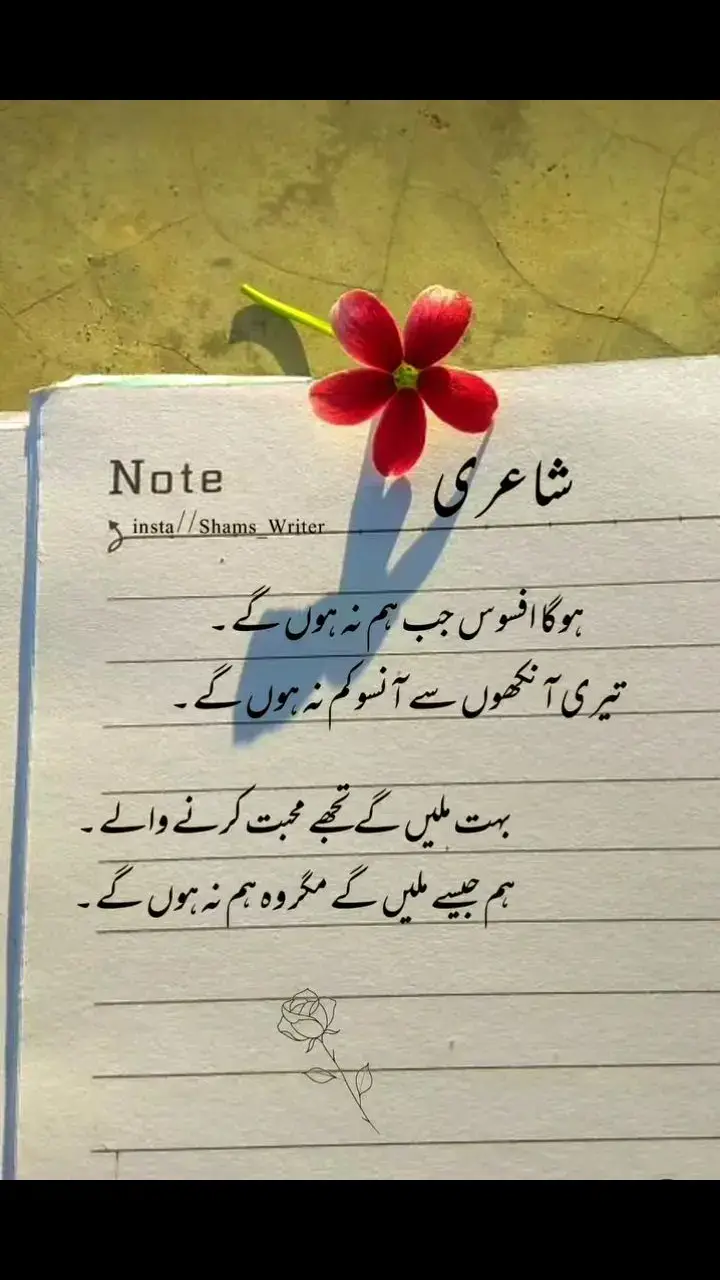 Note
شاعری
insta//Shams_Writer
ہوگا افسوس جب ہم نہ ہوں گے ۔
تیری آنکھوں سے آنسو کم نہ ہوں گے ۔
بہت ملیں گے تجھے محبت کرنے والے ۔
ہم جیسے ملیں گے مگر وہ ہم نہ ہوں گے ۔